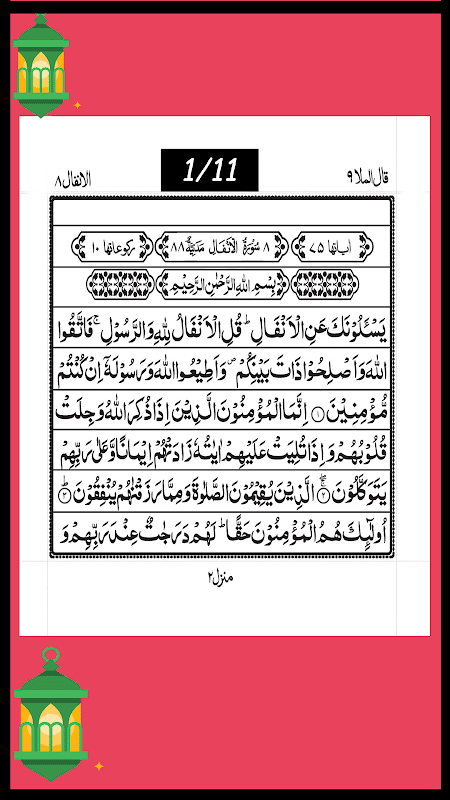 1/11
قال الملا ٩
الانفال ٨
اٰیاتها ٧٥ ٨ سُوْرَةُ الْاَنْفَالِ مَدَنِيَّةٌ ٨٨ ركوعاتها ١٠
بِسْمِ اللهِ الرَّحْمٰنِ الرَّحِيْمِ
يَسْـَٔلُوْنَكَ عَنِ الْاَنْفَالِ ؕ قُلِ الْاَنْفَالُ لِلّٰهِ وَالرَّسُوْلِ ۚ فَاتَّقُوا
اللهَ وَاَصْلِحُوْا ذَاتَ بَيْنِكُمْ ۪ وَاَطِيْعُوا اللهَ وَرَسُوْلَهٗۤ اِنْ كُنْتُمْ
مُّؤْمِنِيْنَ ۝١ اِنَّمَا الْمُؤْمِنُوْنَ الَّذِيْنَ اِذَا ذُكِرَ اللهُ وَجِلَتْ
قُلُوْبُهُمْ وَاِذَا تُلِيَتْ عَلَيْهِمْ اٰيٰتُهٗ زَادَتْهُمْ اِيْمَانًا وَّعَلٰى رَبِّهِمْ
يَتَوَكَّلُوْنَ ۝٢ الَّذِيْنَ يُقِيْمُوْنَ الصَّلٰوةَ وَمِمَّا رَزَقْنٰهُمْ يُنْفِقُوْنَ ۝٣
اُولٰٓئِكَ هُمُ الْمُؤْمِنُوْنَ حَقًّا ؕ لَهُمْ دَرَجٰتٌ عِنْدَ رَبِّهِمْ وَ
منزل ٢